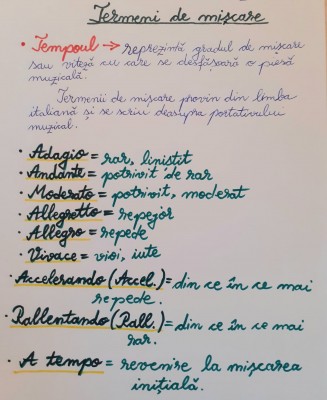 Termeni de mișcare
• Tempoul → reprezintă gradul de mișcare
sau viteză cu care se desfășoară o piesă
muzicală.
Termenii de mișcare provin din limba
italiană și se scriu deasupra portativului
muzical.
• Adagio = rar, liniștit
• Andante = potrivit de rar
• Moderato = potrivit, moderat
• Allegretto = repejor
• Allegro = repede
• Vivace = vioi, iute
• Accelerando (Accel.) = din ce în ce mai
repede.
• Rallentando (Rall.) = din ce în ce mai
rar.
• A tempo = revenire la mișcarea
inițială.